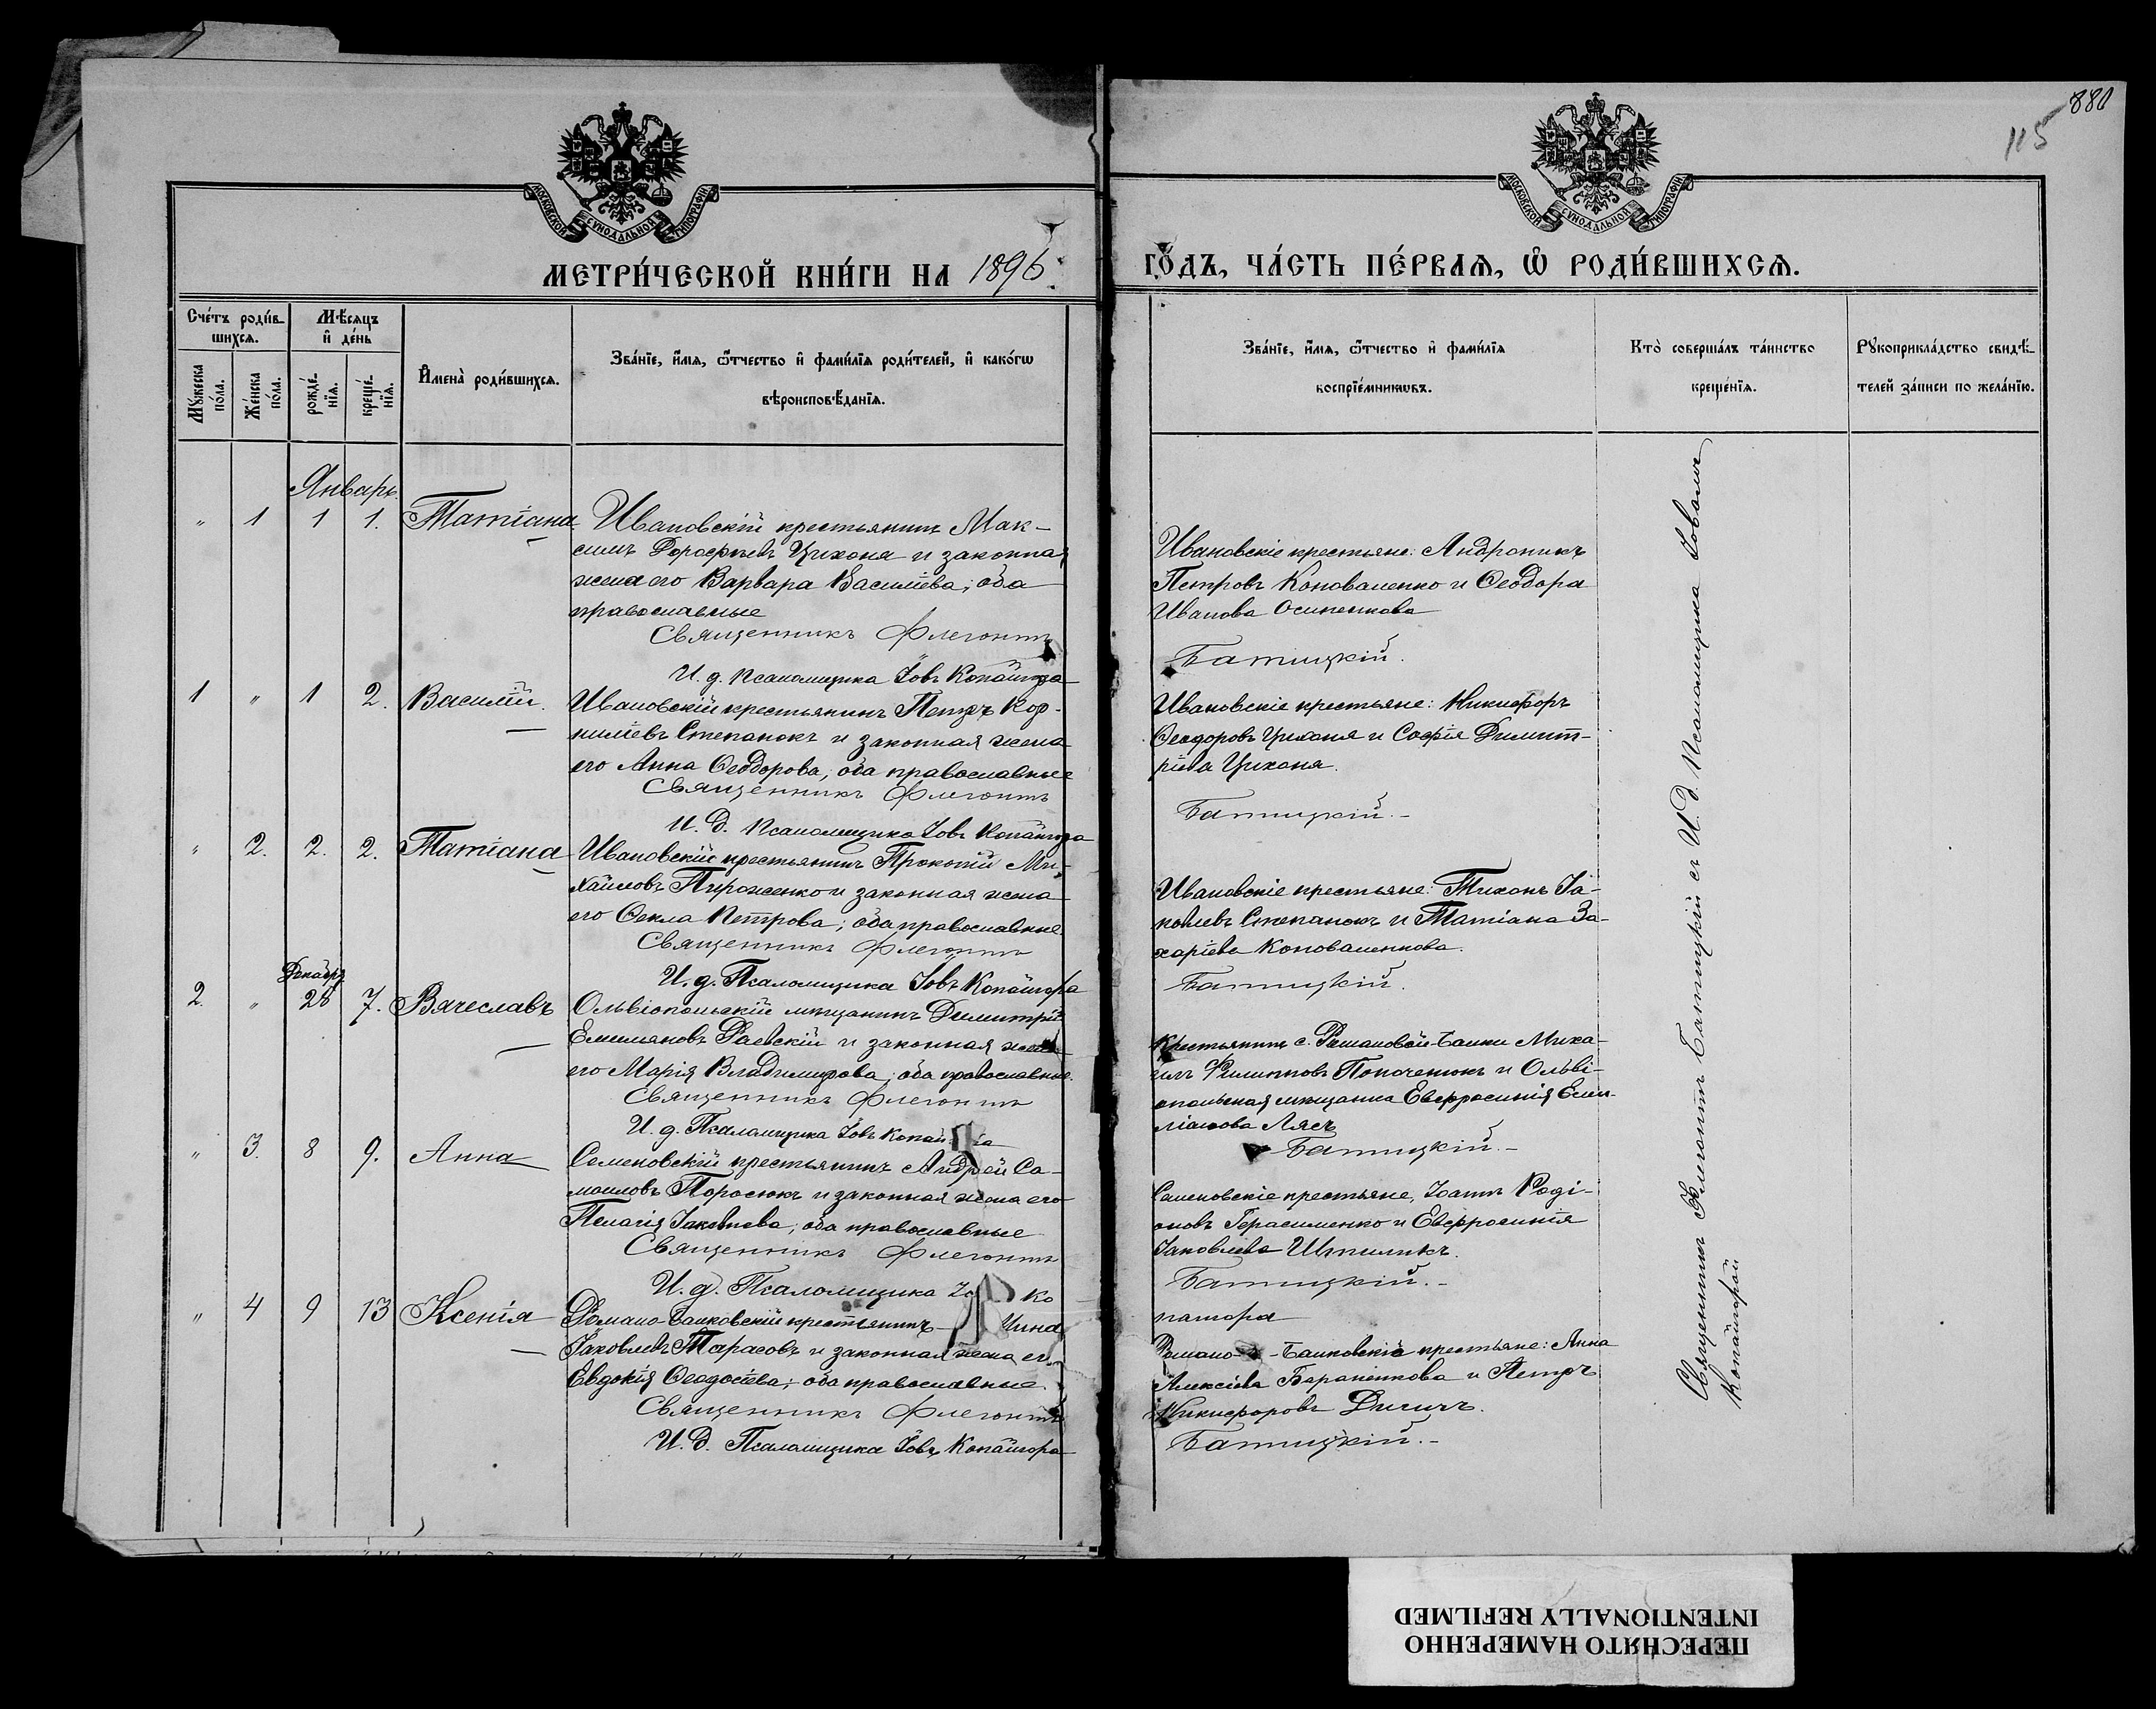 880
115
МОСКОВСКОЙ СѴНОДАЛЬНОЙ ТИПОГРАФІИ
МОСКОВСКОЙ СѴНОДАЛЬНОЙ ТИПОГРАФІИ
МЕТРИ́ЧЕСКОЙ КНИ́ГИ НА 1896
ГО́ДЪ, ЧА́СТЬ ПЕ́РВАѦ, Ѡ҆ РОДИ́ВШИХСѦ.
Сче́тъ роди́в
шихсѧ.
Мѣ́сяцъ
и҆ де́нь
Мꙋ́жеска
по́ла.
Же́нска
по́ла.
рожде́-
нїѧ.
креще́-
нїѧ.
И҆мена̀ роди́вшихсѧ.
Зва́нїе, и҆́мѧ, ѻ҆́тчество и҆ фами́лїѧ роди́телей, и҆ како́гѡ
вѣроисповѣ́данїѧ.
Зва́нїе, и҆́мѧ, ѻ҆́тчество и҆ фами́лїѧ
воспрїе́мниковъ.
Кто̀ соверша́лъ та́инство
креще́нїѧ.
Рꙋкоприкла́дство свидѣ́-
телей за́писи по жела́нїю.
Январь.
" 1 1 1. Татіана
Ивановскій крестьянинъ Мак-
симъ Дорофѣевъ Цихоня и законная
жена его Варвара Василіева; оба
православные
Священникъ Флегонтъ
И. д. псаломщика Іовъ Копайгора
Ивановскіе крестьяне: Андроникъ
Петровъ Коноваленко и Ѳеодора
Иванова Осипенкова
Батицкій.
1 " 1 2. Василій.
Ивановскій крестьянинъ Петръ Кор-
ниліевъ Степанокъ и законная жена
его Анна Ѳеодорова; оба православные
Священникъ Флегонтъ
И. д. псаломщика Іовъ Копайгора
Ивановскіе крестьяне: Никифоръ
Ѳеодоровъ Цихоня и Софія Димит-
ріева Цихоня.
Батицкій.-
" 2. 2. 2. Татіана
Ивановскій крестьянинъ Прокопій Ми-
хайловъ Пироженко и законная жена
его Ѳекла Петрова; оба православные.
Священникъ Флегонтъ
И. д. Псаломщика Іовъ Копайгора
Ивановскіе крестьяне: Тихонъ Іа-
ковлевъ Степанокъ и Татіана За-
харіева Коноваленкова.
Батицкій.
Декабря
2. " 28 7. Вячеславъ
Ольвіопольскій мѣщанинъ Димитрій
Емиліановъ Раевскій и законная жена
его Марія Владимирова; оба православные.
Священникъ Флегонтъ
И. д. Псаломщика Іовъ Копай ра
Крестьянинъ с. Романовой-Балки Миха-
илъ Филипповъ Попоченокъ и Ольві-
опольская мѣщанка Евфросинія Еми-
ліанова Лясъ
Батицкій.-
" 3. 8 9. Анна
Семеновскій крестьянинъ Андрей Са-
моиловъ Поросюкъ и законная жена его
Пелагія Іаковлева; оба православные
Священникъ Флегонтъ
И. д. Псаломщика Іо Ко
Семеновскіе крестьяне, Іоаннъ Роді-
оновъ Герасименко и Евфросинія
Іаковлева Штиликъ.
Батицкій.-
пайгора
" 4 9 13 Ксенія
Романо-Балковскій крестьянинъ
Іаковлевъ Тарасовъ и законная жена его
Евдокія Ѳеодосіева; оба православные.
Священникъ Флегонтъ
И. д. Псаломщика Іовъ Копайгора
Романо-Балковскіе крестьяне: Анна
Алексіева Бараненкова и Петръ
Никифоровъ Дигичъ.
Батицкій.-
Священникъ Флегонтъ Батицкій съ И. д. Псаломщика Іовомъ
Копайгорой
ПЕРЕСНЯТО НАМЕРЕННО
INTENTIONALLY REFILMED